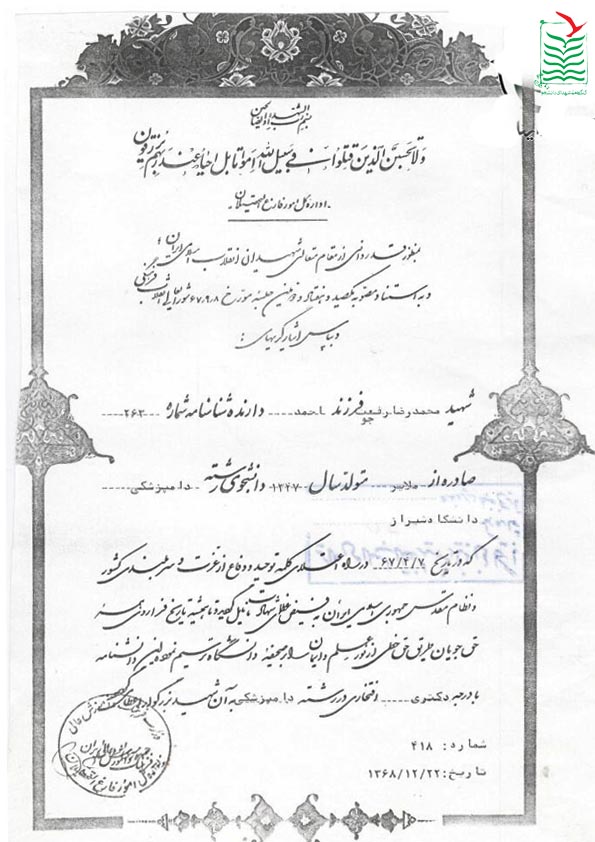 بسم رب الشهداء والصدیقین
ولا تحسبن الذین قتلوا فی سبیل الله امواتا بل احیاء عند ربهم یرزقون
اداره کل امور فارغ التحصیلان
بمنظور قدردانی از مقام متعالی شهیدان انقلاب اسلامی ایران
و به استناد مصوبه یکصد و هفتاد و دومین جلسه مورخ ۶۷/۹/۸ شورایعالی انقلاب فرهنگی
و بپاس ایثارگریهای :
شهید محمدرضا رفیعی جو فرزند احمد دارنده شناسنامه شماره ۲۶۳
صادره از ملایر متولد سال ۱۳۴۷ دانشجوی رشته دامپزشکی
دانشگاه شیراز
که در تاریخ ۶۷/۴/۷ در راه اعتلای کلمه توحید و دفاع از عزت و سربلندی کشور
و نظام مقدس جمهوری اسلامی ایران به فیض عظمای شهادت نایل گردید و تا همیشه تاریخ فرا روی همه
حق جویان طریق حق خطی از نور علم و ایمان را بر صحیفه دانشگاه ترسیم نموده این دانشنامه
با درجه دکتری افتخاری در رشته دامپزشکی به آن شهید بزرگوار
شماره: ۴۱۸
تاریخ: ۱۳۶۸/۱۲/۲۲